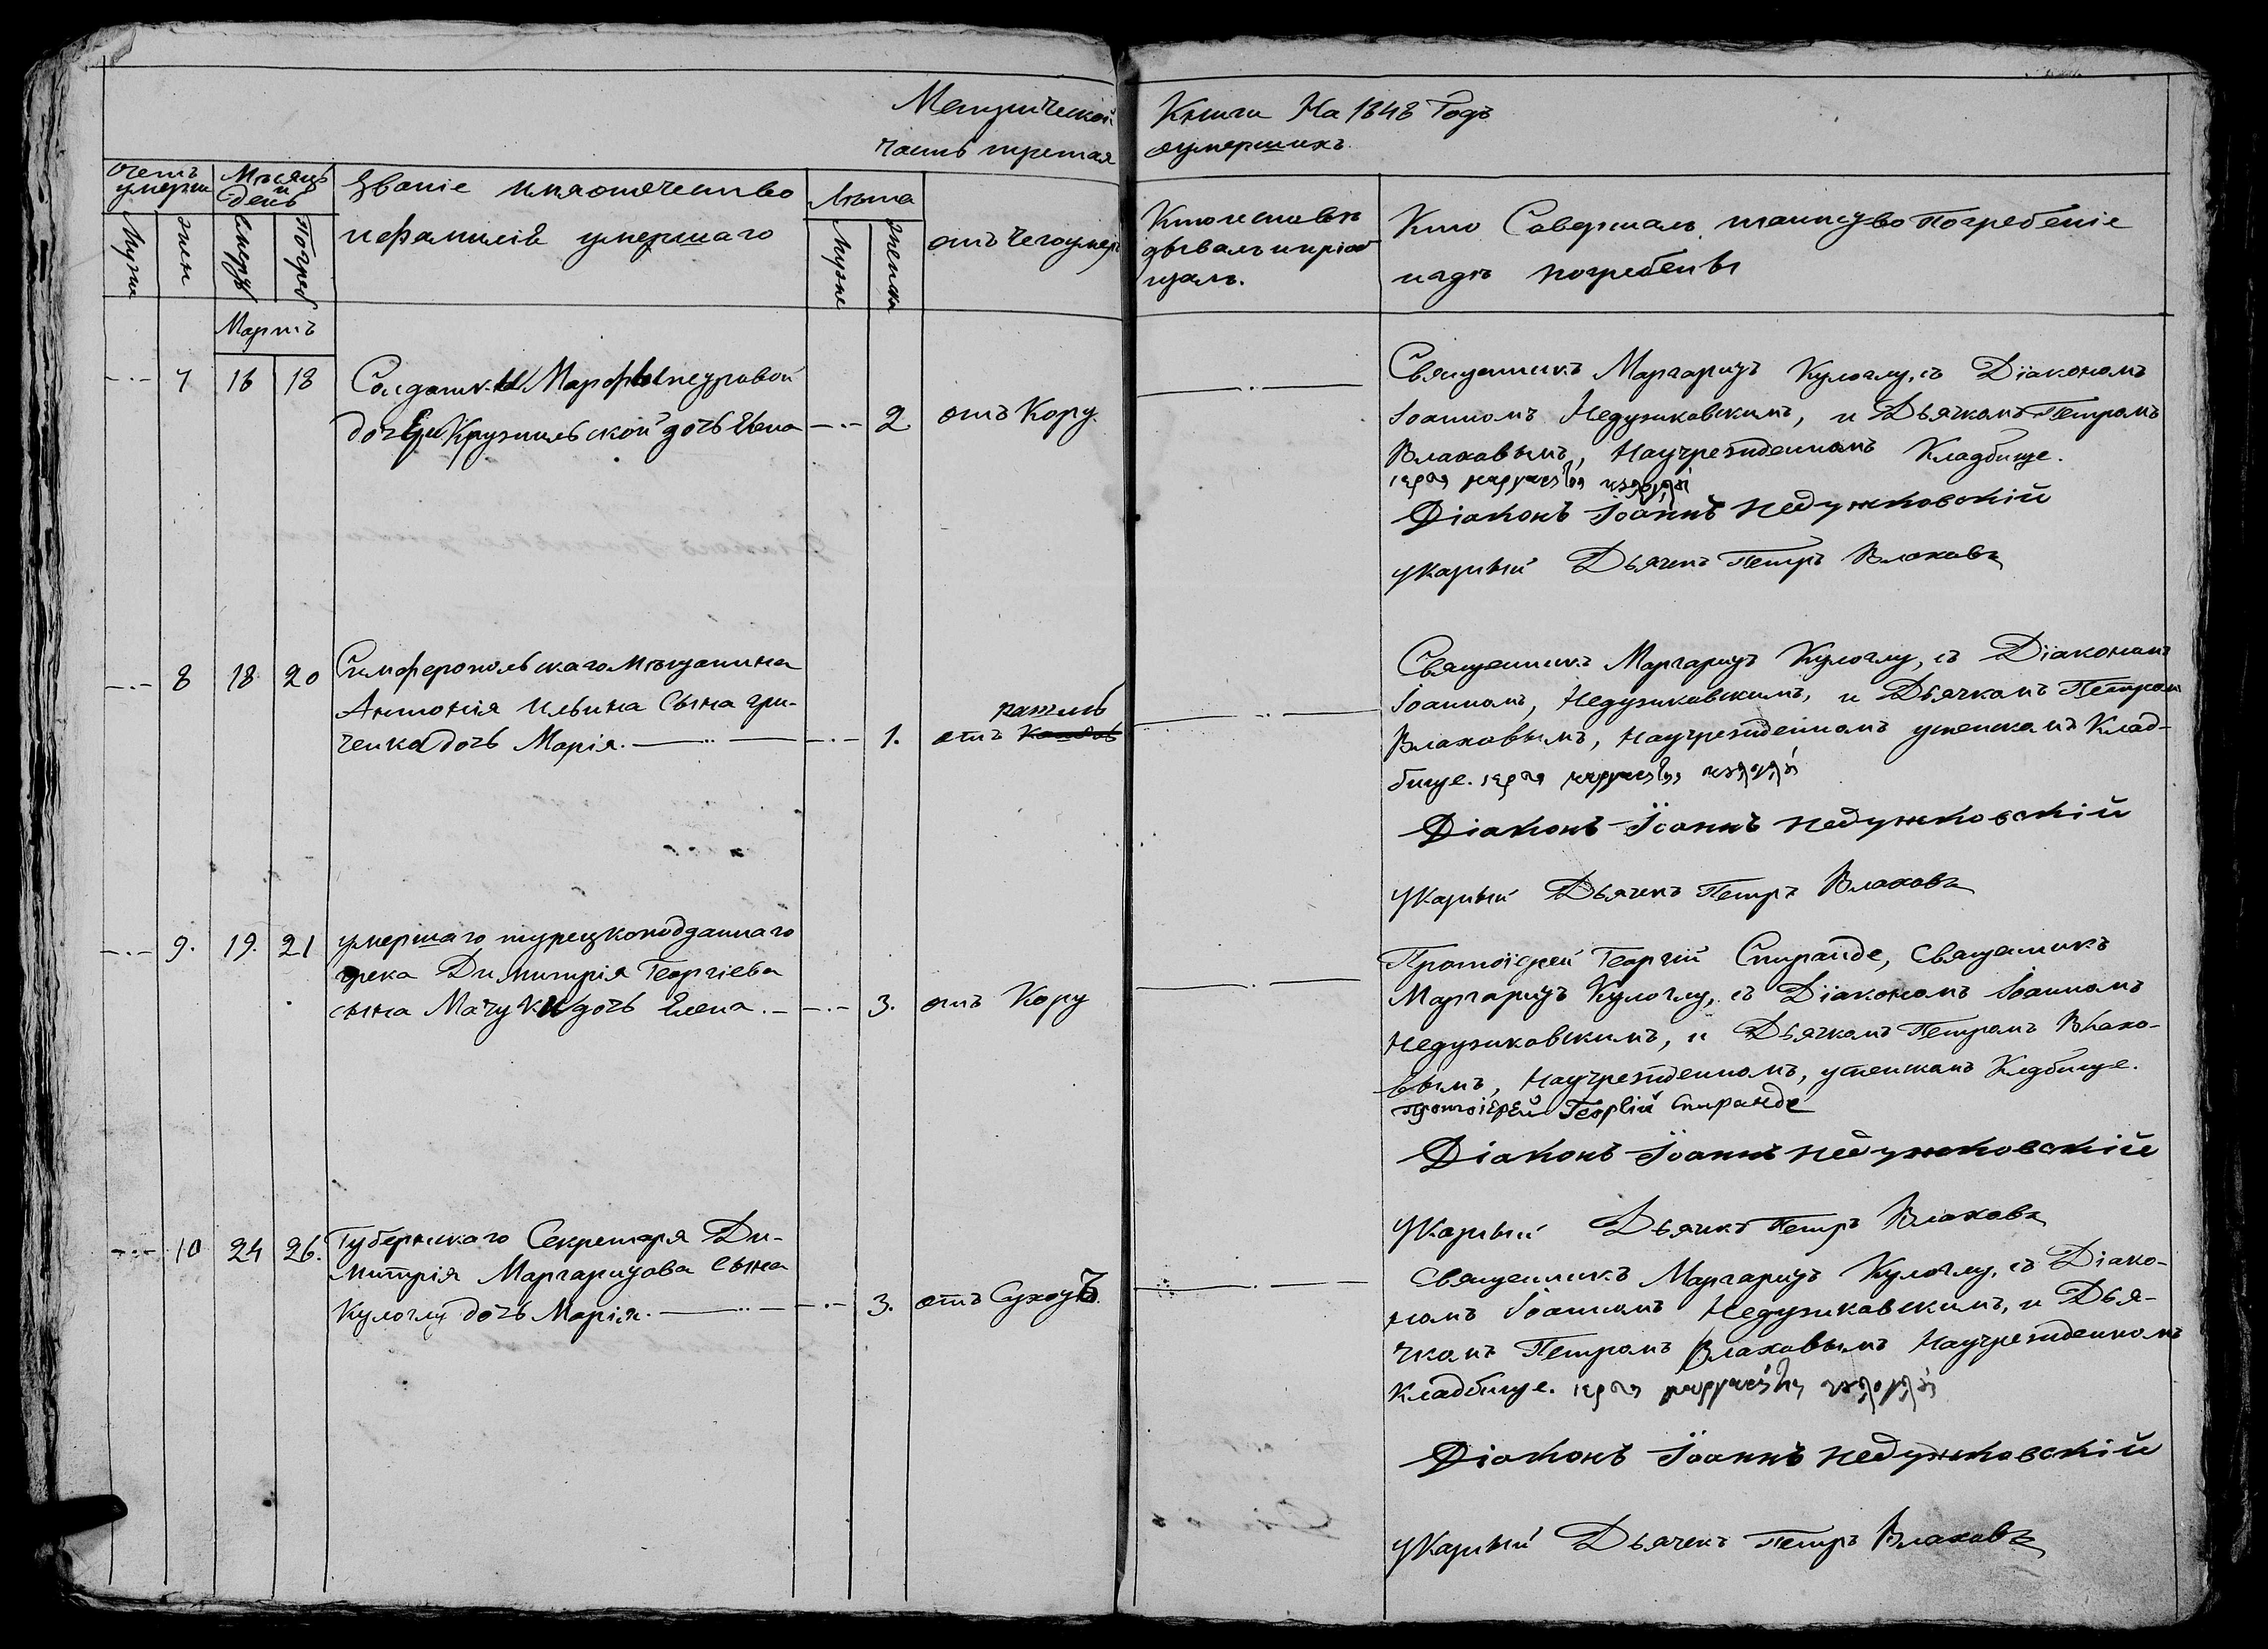 Метрической Книги На 1848 Годъ
часть третая оумершихъ.
счетъ умерши
Мѣсяцъ и день
Званіе имяотечество
ифамиліѣ умершаго
Лѣта
отъ чегоумеръ
Ктоисповѣ
дывалъ и пріоб
щалъ.
Кто Совершалъ таинсуво Погребеніе
игдѣ погребены
Мужи
жен
Смерт
Погреб
Муже
женска
Мартъ
7 16 18
Солдатки Марфы Петровой
дочери Крузильской дочь Елена
2.
отъ Кору.
Священникъ Маргаритъ Кулоглу, съ Діакономъ
Іоанномъ Недужковскимъ, и Дьячкомъ Петромъ
Влаховымъ, Научрежденномъ Кладбище.
Діаконъ Іоаннъ Недужковскій
Указный Дьячекъ Петръ Влаховъ
8 18 20
Симферопольскаго мѣщанина
Антонія Ильина Сына Гри-
ченка дочь Марія.
1.
родимъ
отъ
Священникъ Маргаритъ Кулоглу, съ Діакономъ
Іоанномъ, Недужковскимъ, и Дьячкомъ Петромъ
Влаховымъ, Научрежденномъ Клад-
бище.
Діаконъ Іоаннъ Недужковскій
Указный Дьячекъ Петръ Влаховъ
9. 19. 21
умершаго турецкоподданнаго
грека Димитрія Георгіева
сына Мачуки дочь Елена.
3.
отъ Кору
Протоіерей Георгій Спиранде, Священникъ
Маргаритъ Кулоглу, съ Діакономъ Іоанномъ
Недужковскимъ, и Дьячкомъ Петромъ Влахо-
вымъ, Научрежденномъ, Кладбище.
Протоіерей Георгій Спиранде
Діаконъ Іоаннъ Недужковскій
Указный Дьячекъ Петръ Влаховъ
10 24 26.
Губернскаго Секретаря Ди-
митрія Маргаритова Сына
Кулоглу дочь Марія.
3.
отъ Сухотъ.
Священникъ Маргаритъ Кулоглу, съ Діако-
номъ Іоанномъ Недужковскимъ, и Дья-
чкомъ Петромъ Влаховымъ Научрежденномъ
Кладбище.
Діаконъ Іоаннъ Недужковскій
Указный Дьячекъ Петръ Влаховъ